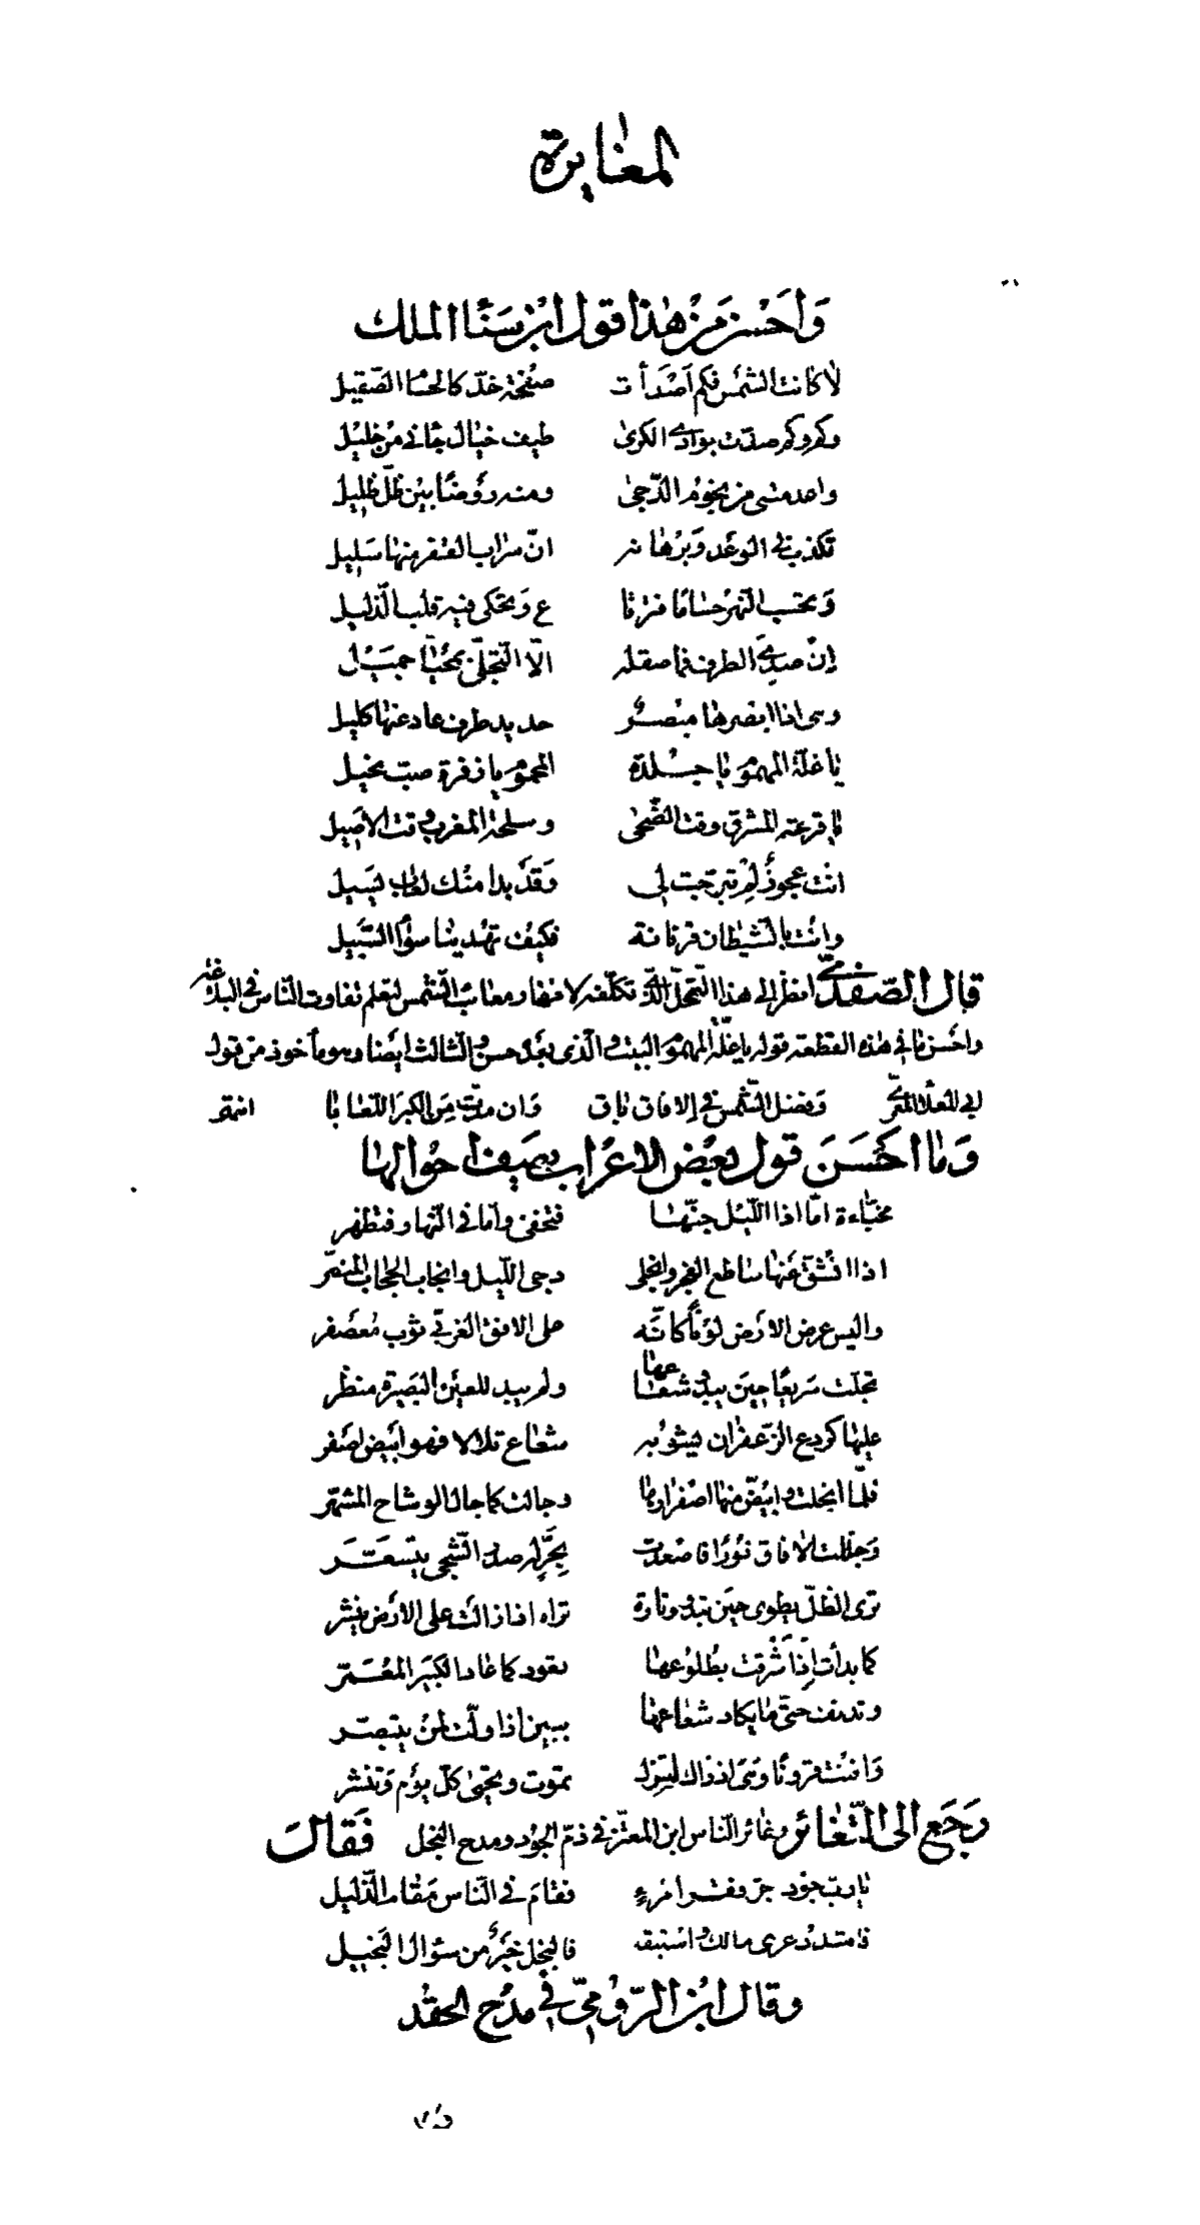 المغايرة
وَاَحْسَن مِنْ هٰذا قول ابْن سَنَا الملك
لا كانت الشمس فكم اَصْدَأت صفحة خدّ كالحسا الصّقيل
وكم وكم صدّت بوادي الكرى طيف خيال جاني من خليل
واعدمتني من نجوم الدّجى ومنه روضًا بين ظلّ ظليل
تكذب في الوعد وبرهانه انّ سراب القفر منها سليل
وتحسب النهر حسامًا فترتا ع وتحكي فيه قلب الذّليل
إن صدئ الطرف فما صقله الّا التجلّي بمحيّا جميل
وهى اذا ابصرها مبصر حديد طرف عاد عنها كليل
يا غلّة المهموم يا جلدة المحموم يا زفرة صبّ نحيل
يا قرعة المشرق وقت الضّحى وسلحة المغرب وقت الاصيل
انت عجوز لِمْ تبرّجت لي وَقَدْ بدا منك لعاب يسيل
وانت بالشيطان قرنانة فكيف تهدينا سواء السّبيل
قال الصّفدي انظر الى هذا التحيّل الذي تكلّفه لاضهار معائب الشّمس لتعلم تفاوت النّاس في البلاغة
واحسن ما في هذه القطعة قوله يا غلّة المهموم البيت والّذي بعده حسن والثّالث ايضا وهو مأخوذ من قول
ابي العلاء المعري وفضل الشّمس في الافاق باق وَان مدّت من الكبر اللّعابا انتهى
وَمَا اَحْسَنَ قول بعض الاعراب يصف احوالها
مخبّاءة امّا اذا اللّيل جنّها فتخفى وامّا في النّهار فتظهر
اذا انشقّ عنها ساطع الفجر وانجلى دجى اللّيل وانجاب الحجاب المستر
والبس عرض الارض لونًا كانّه على الافق الغربي ثوب معصفر
تجلّت سريعًا حين يبدو شعاعها ولم يبد للعين البصيرة منظر
عليها كردع الزّعفران يشوبه شعاع تلالا فهو ابيض اصفر
فلمّا انجلت وابيضّ منها اصفرارها وجالت كما جال الوشاح المشهّر
وجلّلت الافاق نورًا فاصعدت بحرٍّ له صدر الشّجى يتسعّر
ترى الظلّ يطوى حين تبدو وتارة تراه اذا زالت على الارض ينشر
كما بدأت إذ أشرقت بطلوعها يعود كما عاد الكبير المعمّر
وتدنف حتّى ما يكاد شعاعها يبين اذا ولّت لمن يتبصّر
وافنت قرونًا وهى اذ ذاك لم تزل تموت وتحيى كلّ يوم وتنشر
رَجَع الى التّغائر وغائر النّاس ابن المعتزّ في ذمّ الجود ومدح البخل فَقَال
يا ربّ جود جرّ فقر امرءٍ فقام في النّاس مقام الذّليل
فاشدد عرى مالك واستبقه فالبخل خير من سؤال البخيل
وقال ابن الرّوميّ في مدح الحقد